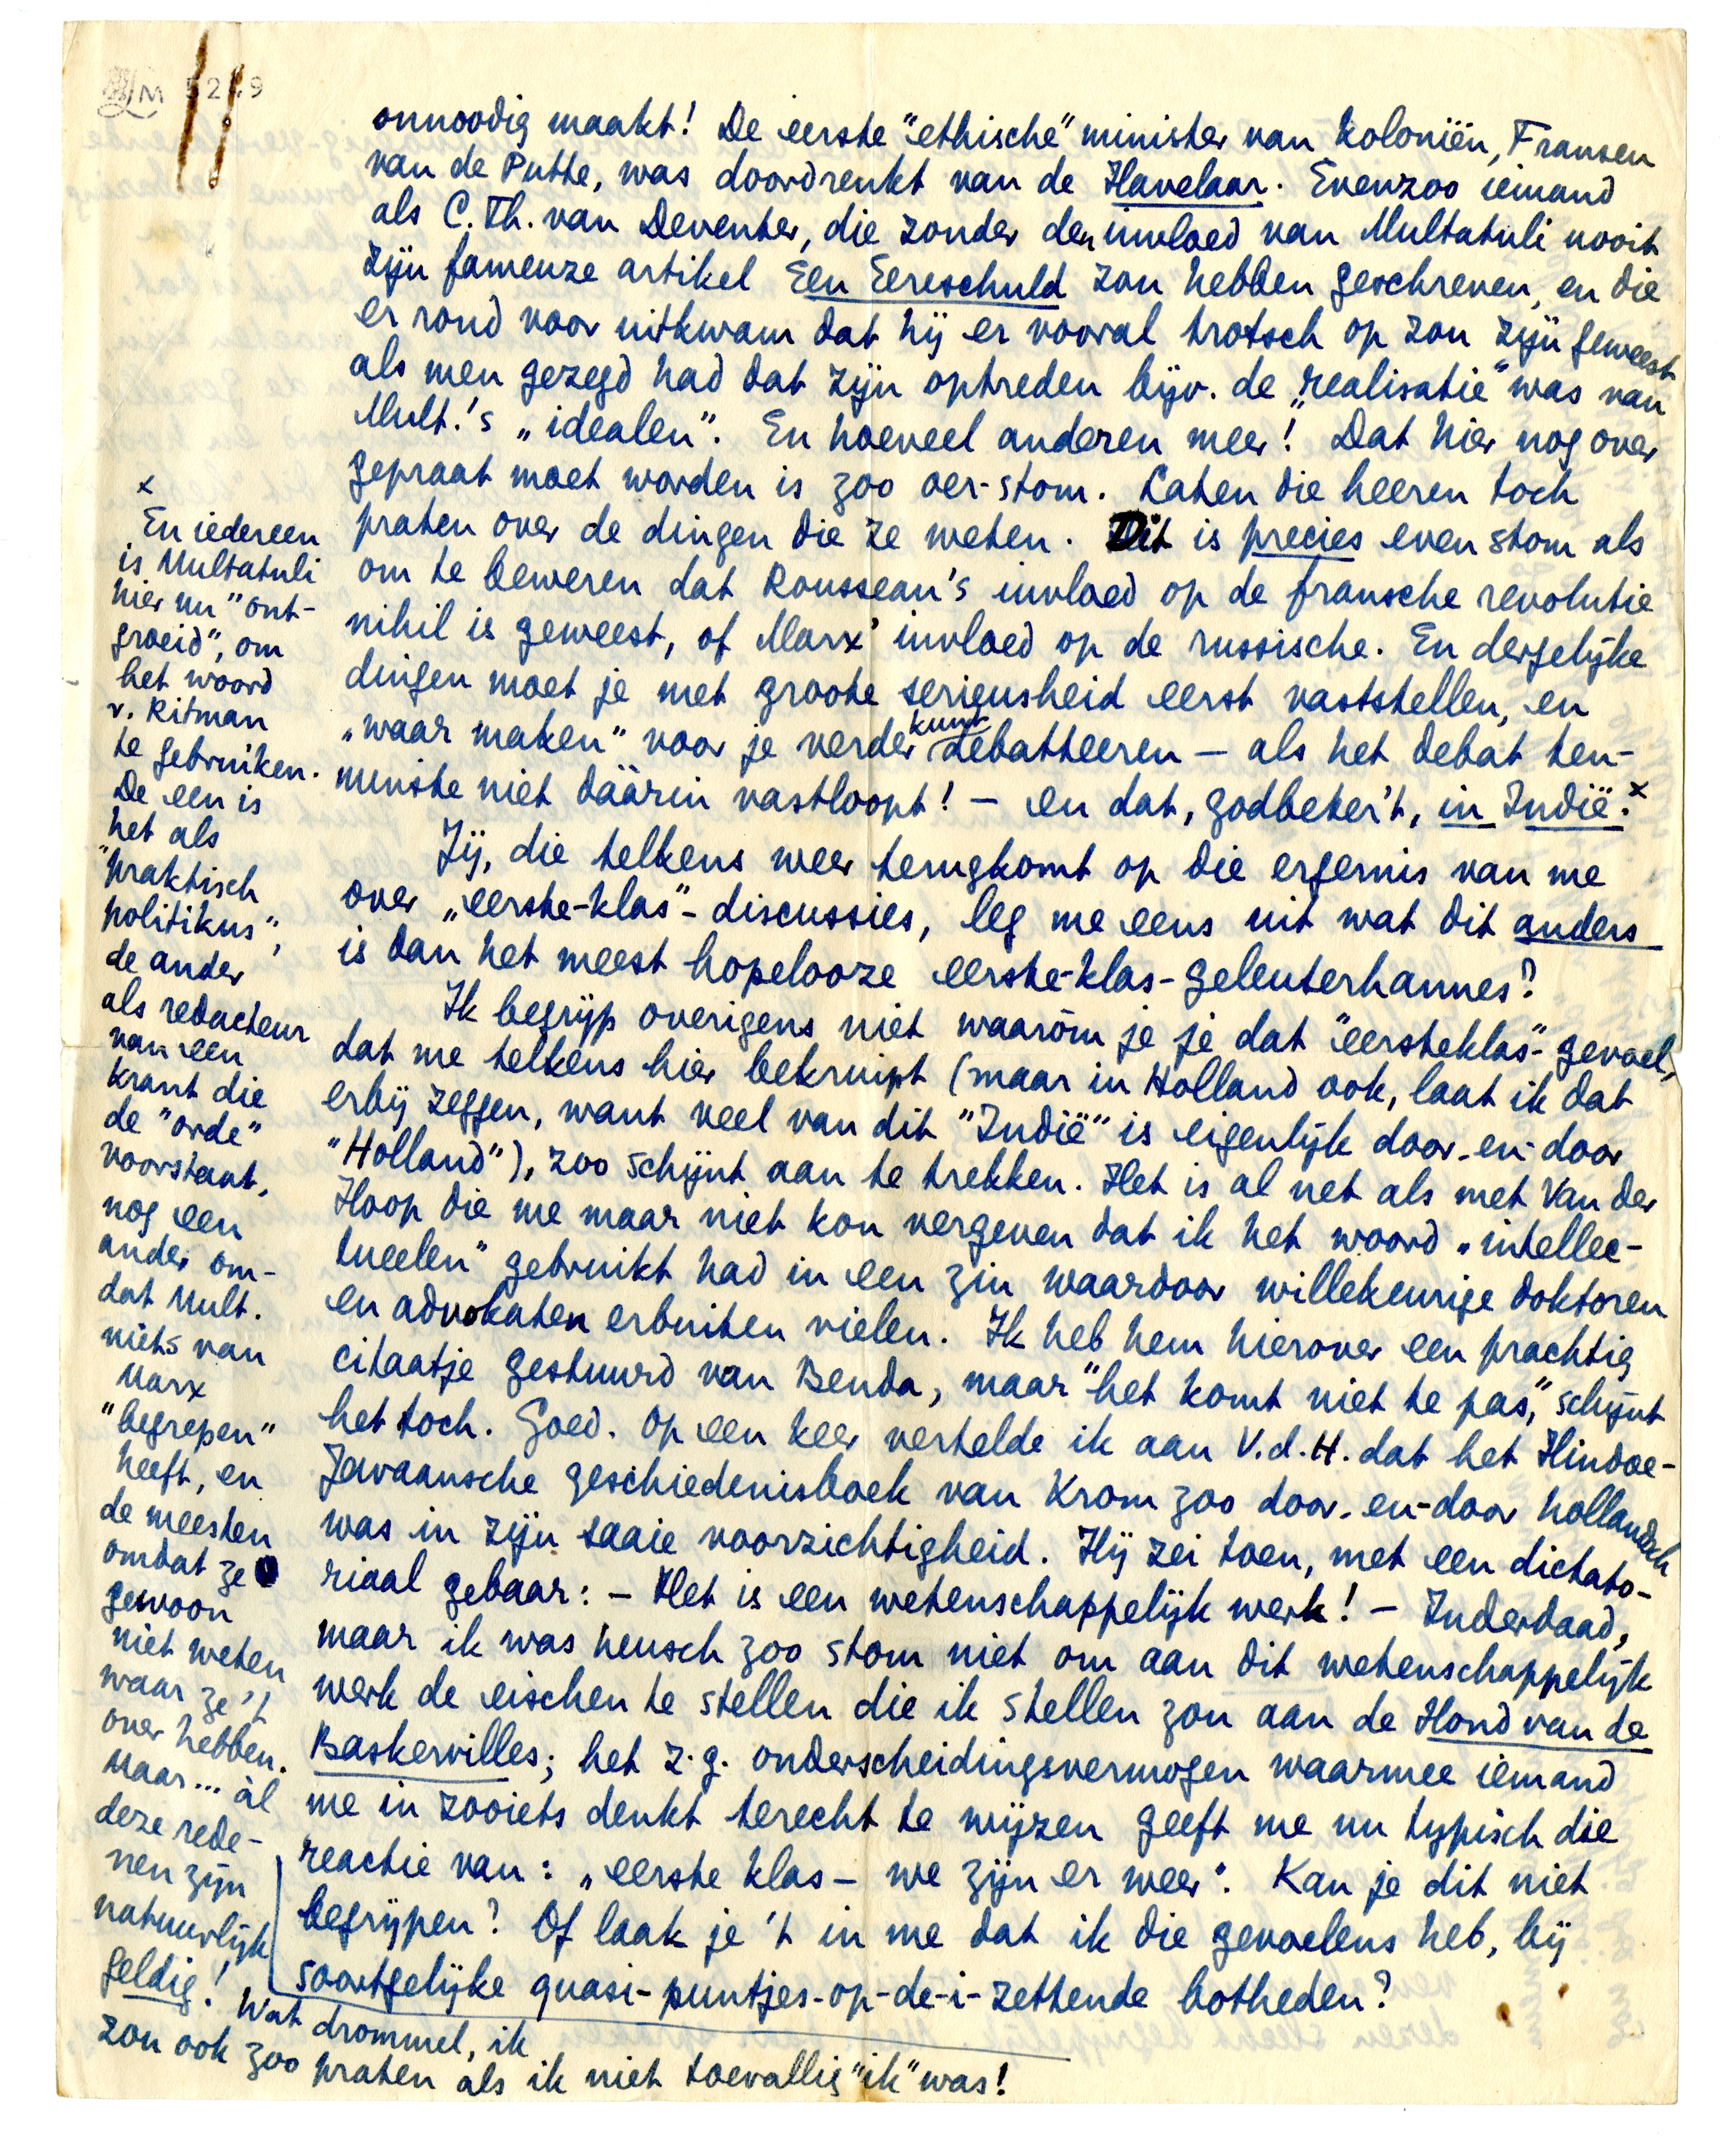 LM 5249
onnoodig maakt! De eerste "ethische" minister van koloniën, Fransen
van de Putte, was doordrenkt van de Havelaar. Evenzoo iemand
als C. Th. van Deventer, die zonder den invloed van Multatuli nooit
zijn fameuze artikel Een Eereschuld zou hebben geschreven, en die
er rond voor uitkwam dat hij er vooral trotsch op zou zijn geweest
als men gezegd had dat zijn optreden bijv. de „realisatie" was van
Mult.'s „idealen". En hoeveel anderen meer! Dat hier nog over
gepraat moet worden is zoo oer-stom. Laten die heeren toch
praten over de dingen die ze weten. Dit is precies even stom als
om te beweren dat Rousseau's invloed op de fransche revolutie
nihil is geweest, of Marx' invloed op de russische. En dergelijke
dingen moet je met groote serieusheid eerst vaststellen, en
„waar maken" voor je verder kunt debatteeren – als het debat ten-
minste niet dáárin vastloopt! – en dat, godbeter't, in Indië!x
Jij, die telkens weer terugkomt op die ergernis van me
over „eerste-klas"-discussies, leg me eens uit wat dit anders
is dan het meest hopelooze eerste-klas-geleuterhannes?
Ik begrijp overigens niet waaròm je je dat "eersteklas"-gevoel,
dat me telkens hier bekruipt (maar in Holland ook, laat ik dat
erbij zeggen, want veel van dit "Indië" is eigenlijk door-en-door
"Holland"), zoo schijnt aan te trekken. Het is al net als met Van der
Hoop die me maar niet kon vergeven dat ik het woord „intellec-
tueelen" gebruikt had in een zin waardoor willekeurige doktoren
en advokaten erbuiten vielen. Ik heb hem hierover een prachtig
citaatje gestuurd van Benda, maar "het komt niet te pas", schijnt
het toch. Goed. Op een keer vertelde ik aan V.d.H. dat het Hindoe-
Javaansche geschiedenisboek van Krom zoo door-en-door hollandsch
was in zijn saaie voorzichtigheid. Hij zei toen, met een dictato-
riaal gebaar: – Het is een wetenschappelijk werk! – Inderdaad,
maar ik was heusch zoo stom niet om aan dit wetenschappelijk
werk de eischen te stellen die ik stellen zou aan de Hond van de
Baskervilles; het z.g. onderscheidingsvermogen waarmee iemand
me in zooiets denkt terecht te wijzen geeft me nu typisch die
reactie van: „eerste klas – we zijn er weer". Kan je dit niet
begrijpen? Of laak je 't in me dat ik die gevoelens heb, bij
soortgelijke quasi-puntjes-op-de-i-zettende botheden?
x
En iedereen
is Multatuli
hier nu "ont-
groeid", om
het woord
v. Ritman
te gebruiken.
De een is
het als
"praktisch
politikus",
de ander
als redacteur
van een
krant die
de "orde"
voorstaat,
nog een
ander om-
dat Mult.
niets van
Marx
"begrepen"
heeft, en
de meesten
omdat ze
gewoon
niet weten
waar ze 't
over hebben.
Maar... àl
deze rede-
nen zijn
natuurlijk
geldig! Wat drommel, ik
zou ook zoo praten als ik niet toevallig "ik" was!